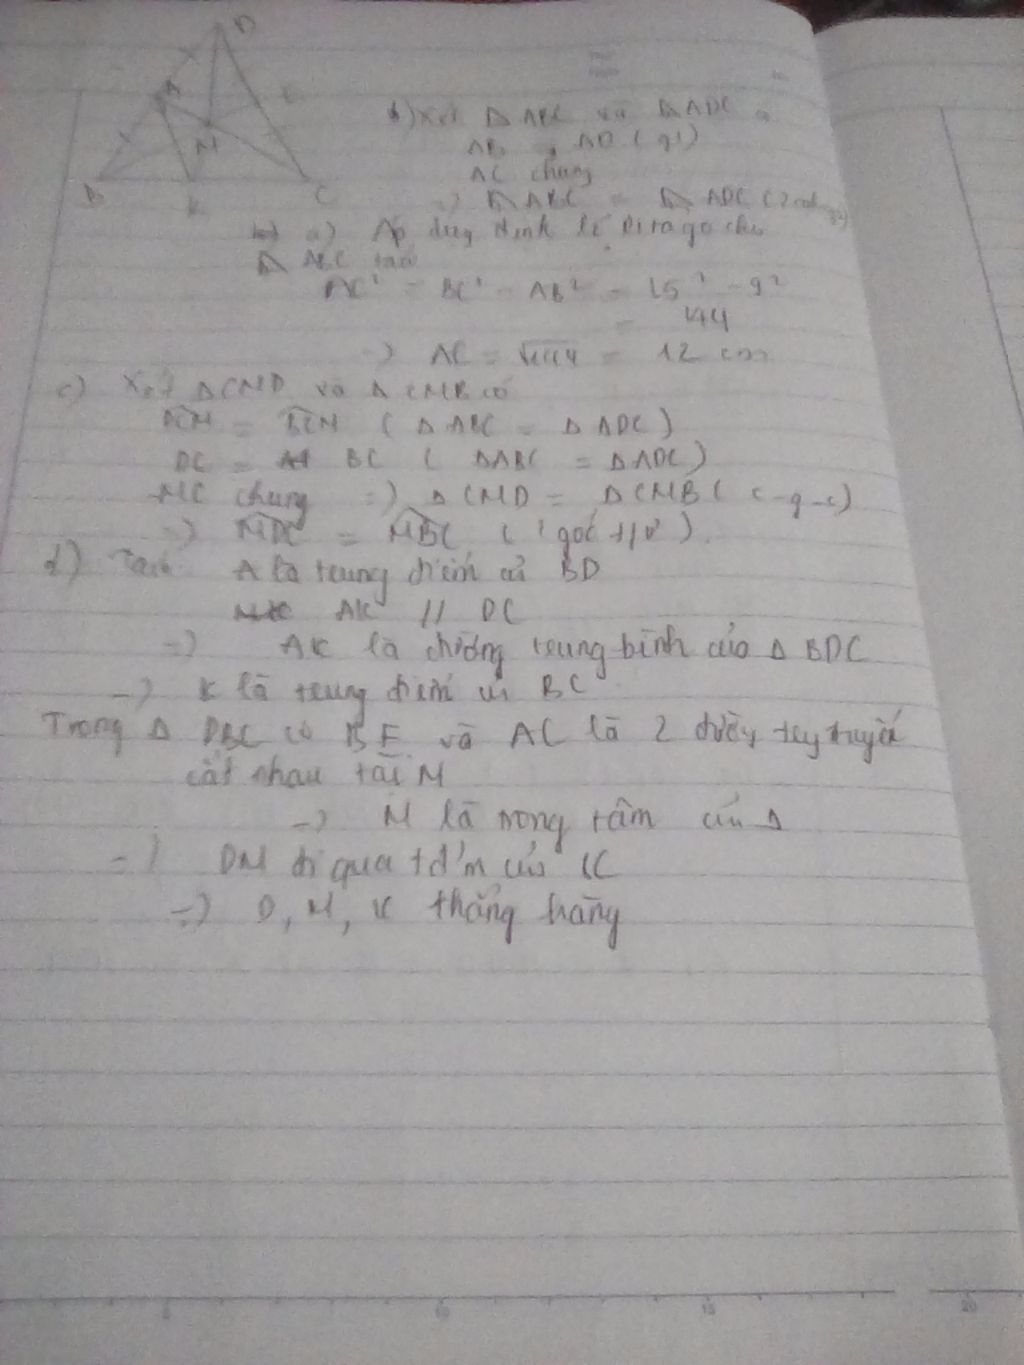 D
A
E
M
B
K
C
b) Xét Δ ABC và Δ ADC
AB = AD (gt)
AC chung
=) Δ ABC = Δ ADC (2
a) Áp dụng định lí Pitago cho
Δ ABC
AC² = BC² - AB² = 15² - 9²
= 144
=) AC = √144 = 12 cm
c) Xét Δ CMD và Δ CMB có
DCM = BCM ( Δ ABC = Δ ADC )
DC = BC ( ΔABC = ΔADC )
MC chung =) Δ CMD = Δ CMB ( c-g-c)
=) MDC = MBC ( góc t/ư ).
d) A là trung điểm củ BD
AK // DC
=) AK là đường trung bình của Δ BDC
=) K là trung điểm củ BC
Trong Δ DBC có BE và AC là 2 tuyến
cắt nhau tại M
=) M là trọng tâm của Δ
=) DM đi qua của BC
=) D, M, K thẳng hàng
5
10
15
20